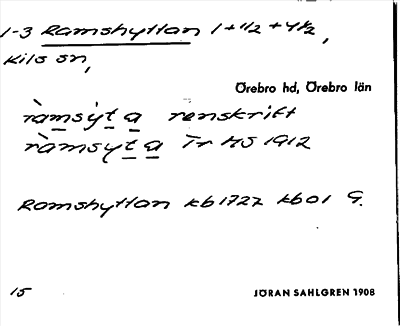 1-3 Ramshyttan 1+1/2+4 1/2,
Kils sn,
Örebro hd, Örebro län
ràmsýta renskrift
ràmsyta Tr HS 1912
Ramshyttan kb1727 kb01 G.
15
JÖRAN SAHLGREN 1908